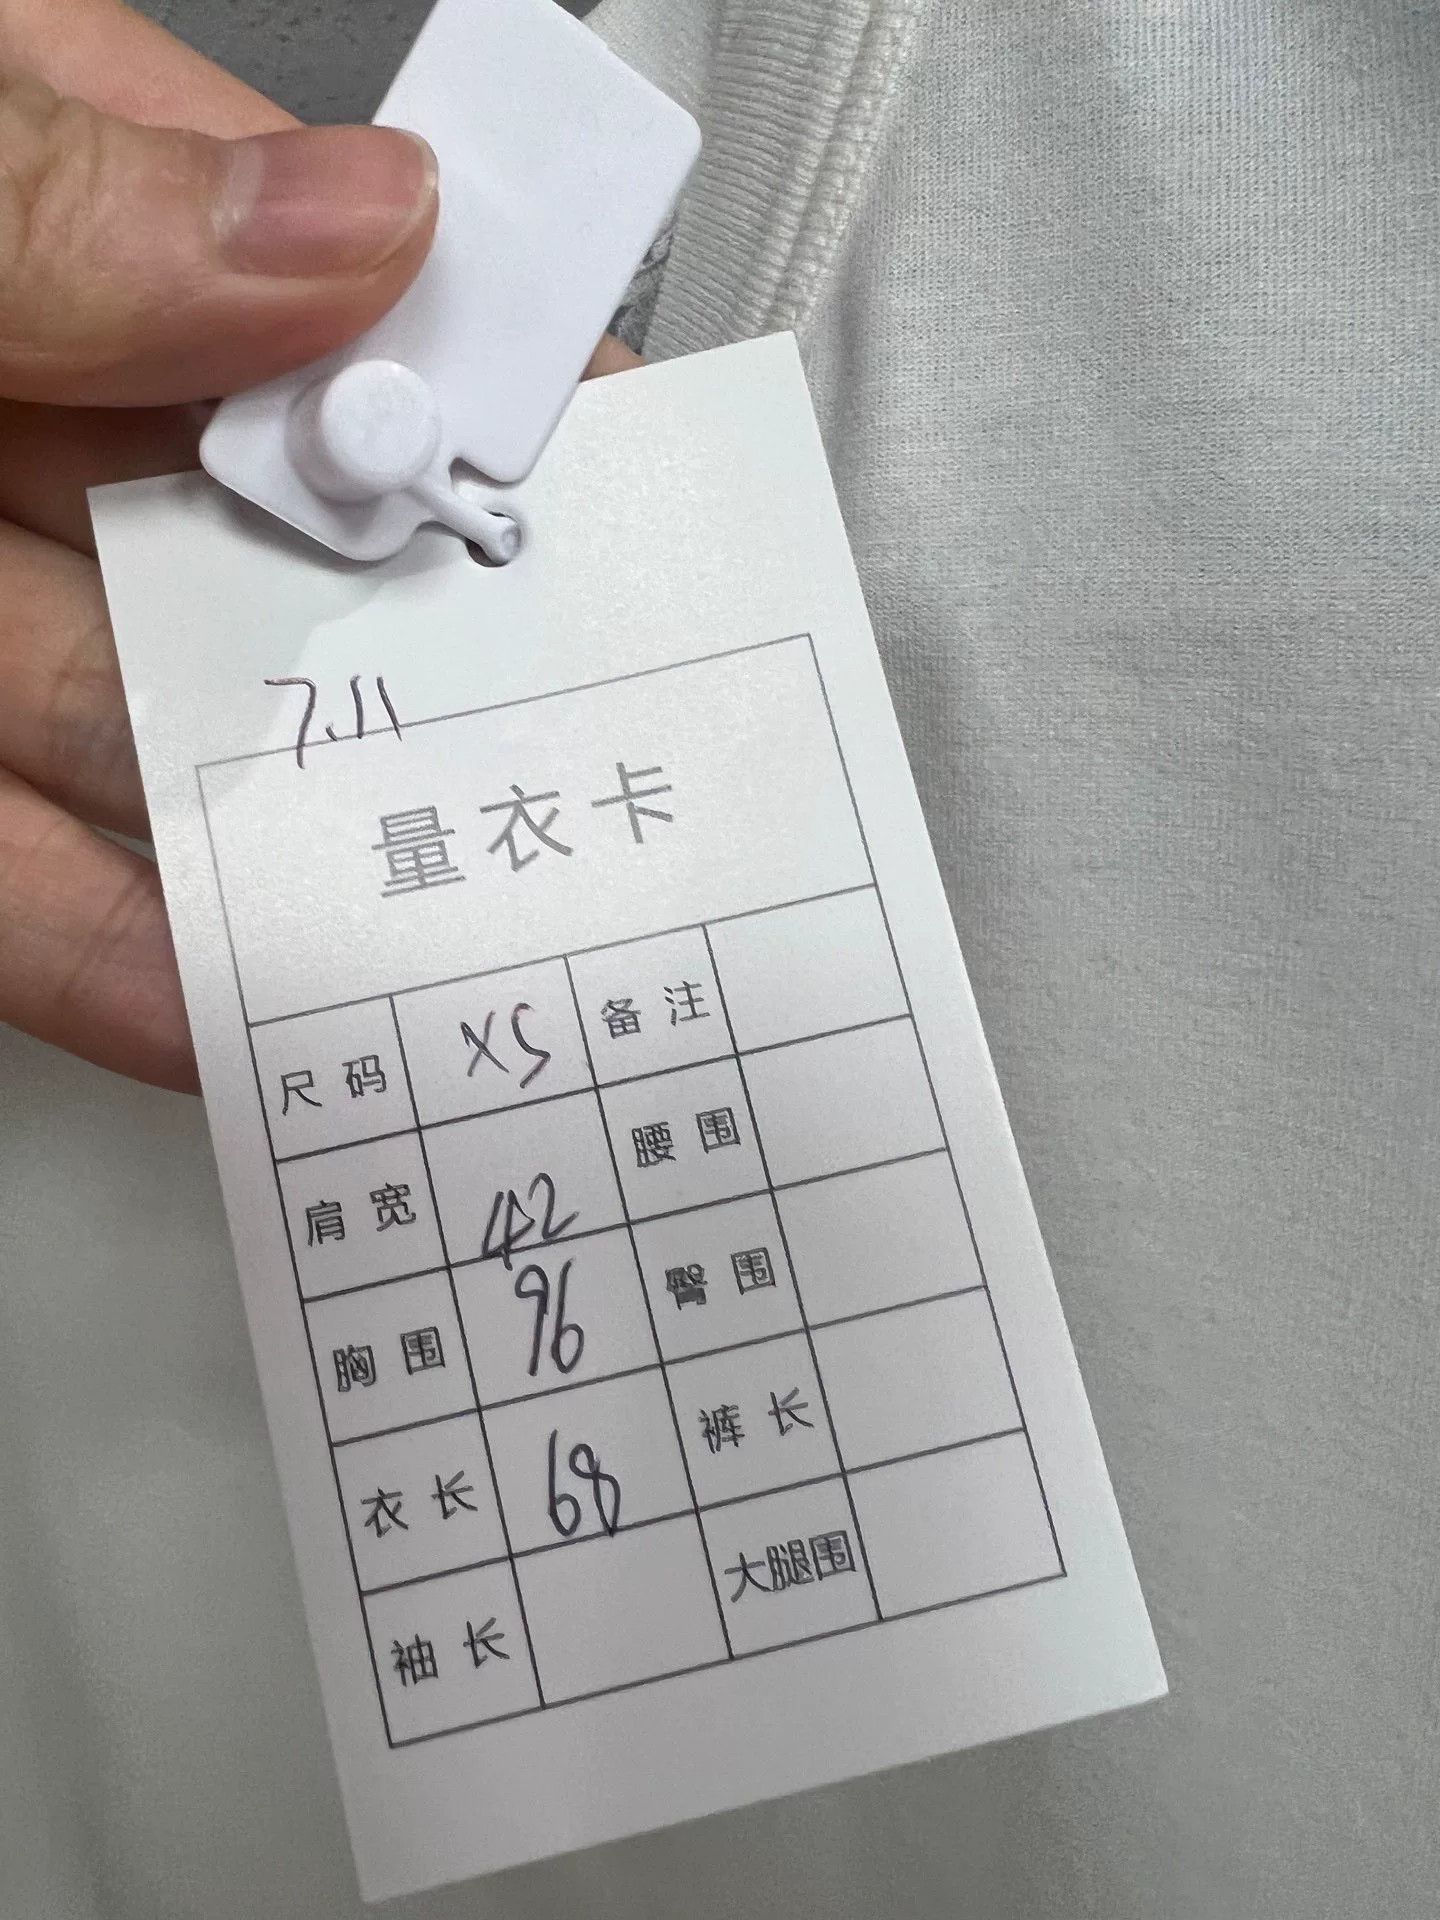 7.11
量衣卡
尺码 XS 备注
肩宽 42 腰围
胸围 96 臀围
衣长 68 裤长
袖长 大腿围